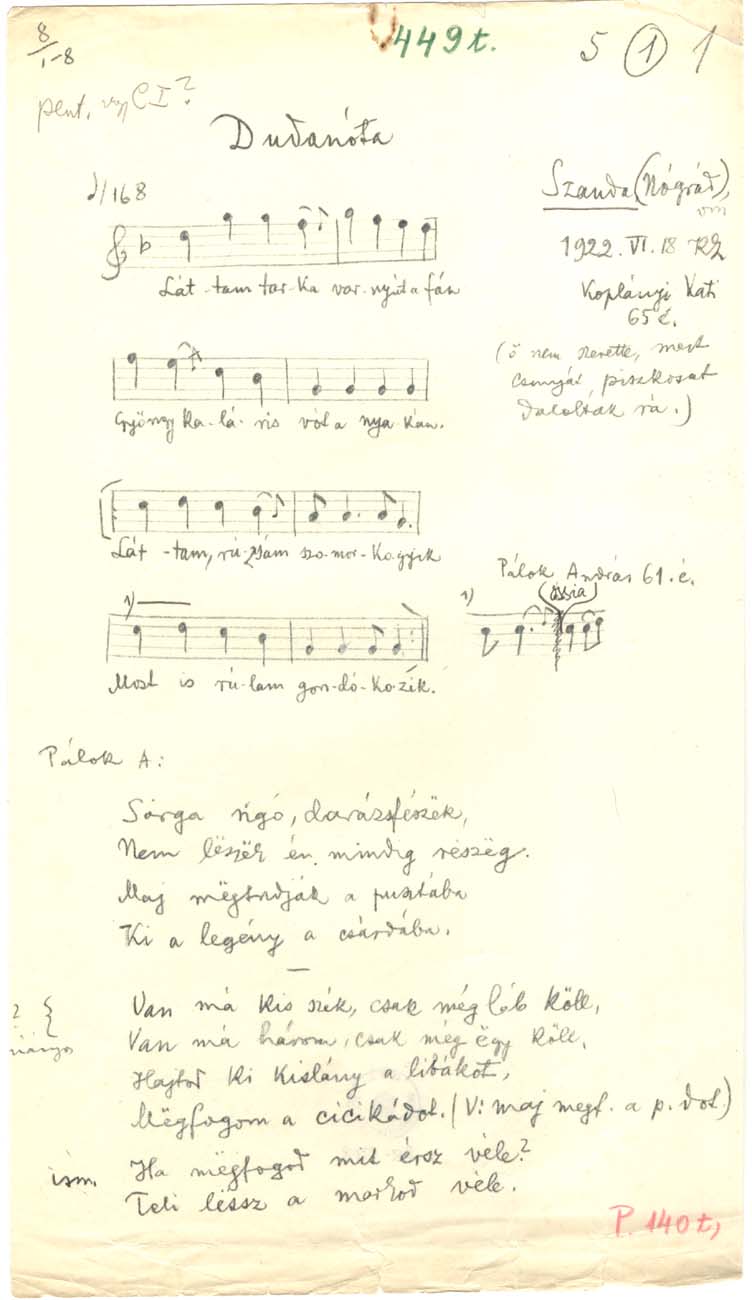 8/1-8
449t.
5 1 1
pent. vagy CI?
Dudanóta
♩/168
Szanda (Nógrád),
1922. VI. 18
Koplányi Kati
65 é.
(ő nem szerette, mert
csunyát, piszkosat
daloltak rá.)
Lát-tam tar-ka var-nyút a fán
Gyöngy ka-lá-ris vót a nya-kán.
Lát-tam, rú-zsám szo-mor-ko-gyik
Pálok András 61. é.
1)
1)
(ossia)
Most is rú-lam gon-dó-ko-zik.
Pálok A:
Sárga rigó, darázsfészëk,
Nem lëszëk én mindig részëg.
Maj mëgtudják a pusztába
Ki a legény a csárdába.
Van má kis szék, csak még láb köll,
? {
Van má három, csak még ëgy köll,
Hajtod ki kislány a libákot,
Mëgfogom a cicikádot. (V: maj megf. a p. dot.)
Ha mëgfogod mit érsz véle?
ism.
Teli lëssz a markod véle.
P. 140t,